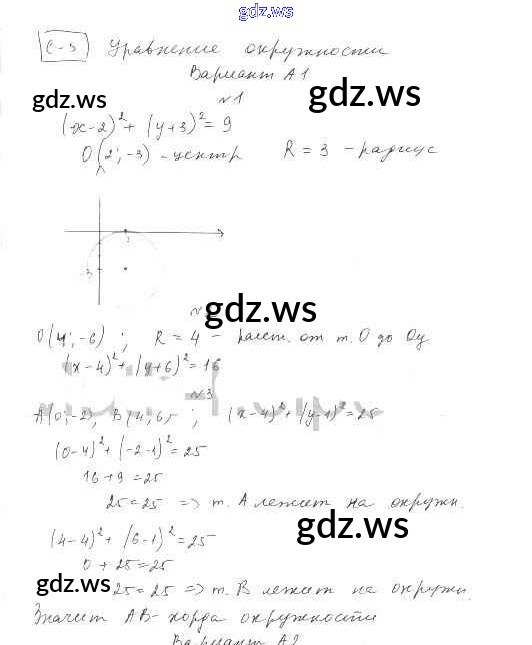 gdz.ws
С-5 Уравнение окружности
Вариант А1
gdz.ws gdz.ws
№1
(x-2)² + (y+3)² = 9
O(2; -3) - центр R = 3 - радиус
-3
gdz.ws
O(4; -6) ; R = 4 - расст. от т. O до Oy
(x-4)² + (y+6)² = 16
№3
A(0; -2), B(4; 6) ; (x-4)² + (y-1)² = 25
(0-4)² + (-2-1)² = 25
16 + 9 = 25
25 = 25 => т. A лежит на окружн.
gdz.ws
(4-4)² + (6-1)² = 25
0 + 25 = 25
gdz.ws 25 = 25 => т. B лежит на окружн.
Значит AB - хорда окружности
Вариант А2